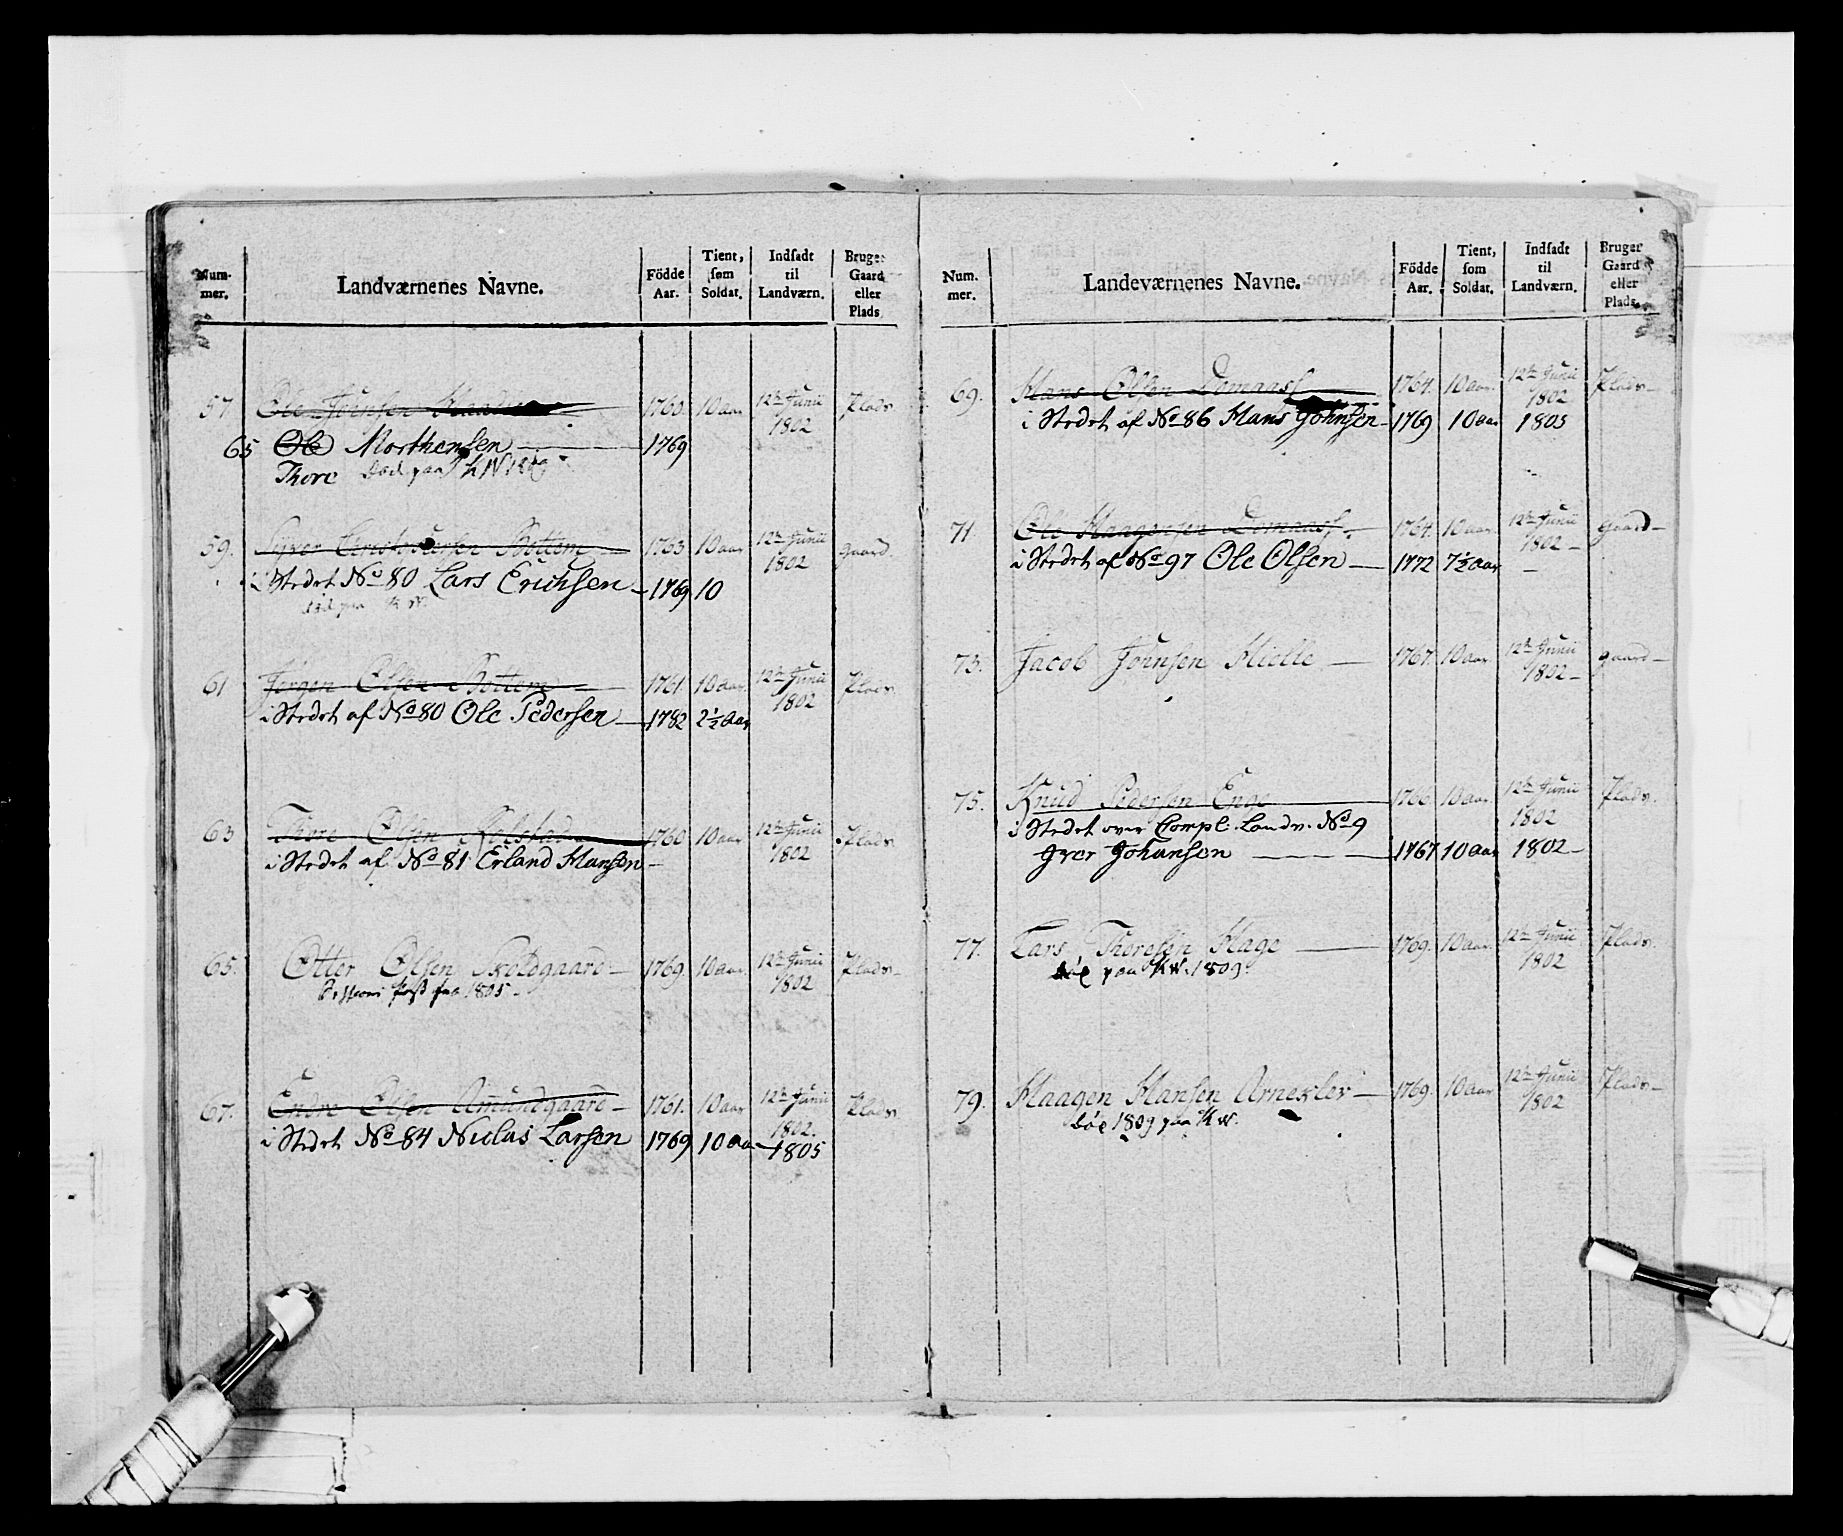 Num-
mer.
Landværnenes Navne.
Födde
Aar.
Tient,
som
Soldat.
Indsadt
til
Landværn.
Bruger
Gaard
eller
Plads
57. Ole 1760. 10 aar 12te Junii 1802 Plads
65 Ole Morthensen 1769
Thore Död paa
59. Syver Bottem 1763 10 aar 12te Junii 1802 gaard
i Stedet No 80 Lars Erichsen 1769 10
död paa
61 Jørgen Olsen Bottem 1761 10 aar 12te Junii 1802 Plads
i Stedet af No 80 Ole Pedersen 1782 2½ aar
63 Thore Olsen Kolstad 1760 10 aar 12te Junii 1802 Plads
i Stedet af No 81 Erland Hansen
65. Otter Olsen 1769. 10 aar 12te Junii 1802 Plads
1805
67. Endre Olsen Amundgaard 1761. 10 aar 12te Junii 1802. Plads
i Stedet No 84 Niclas Larsen 1769 10 aar 1805
Num.
mer.
Landeværnenes Navne.
Födde
Aar.
Tient,
som
Soldat.
Indsadt
til
Landværn.
Bruger
Gaard
eller
Plads.
69. Hans Olsen Domaas 1764. 10 aar. 12te Junii 1802 Plads
i Stedet af No 86 Hans Johnsen 1769 10 aar 1805
71 Ole Haagensen Domaas 1764. 10 aar. 12te Junii 1802 gaard
i Stedet af No 97 Ole Olsen 1772 7½ aar
73. Jacob Johnsen Hielle 1767. 10 aar 12te Junii 1802 gaard
75. Knud Pedersen Enge 1766 10 aar. 12te Junii 1802 Plads.
i Stedet over Compl. Landv. No 9
Iver Johansen 1767 10 aar 1802
77. Lars Thoresen Hage 1769. 10 aar. 12te Junii 1802 Plads.
döe paa K.W. 1809.
79. Haagen Hansen 1769. 10 aar 12te Junii 1802 Plads
döe 1809 paa K.W.